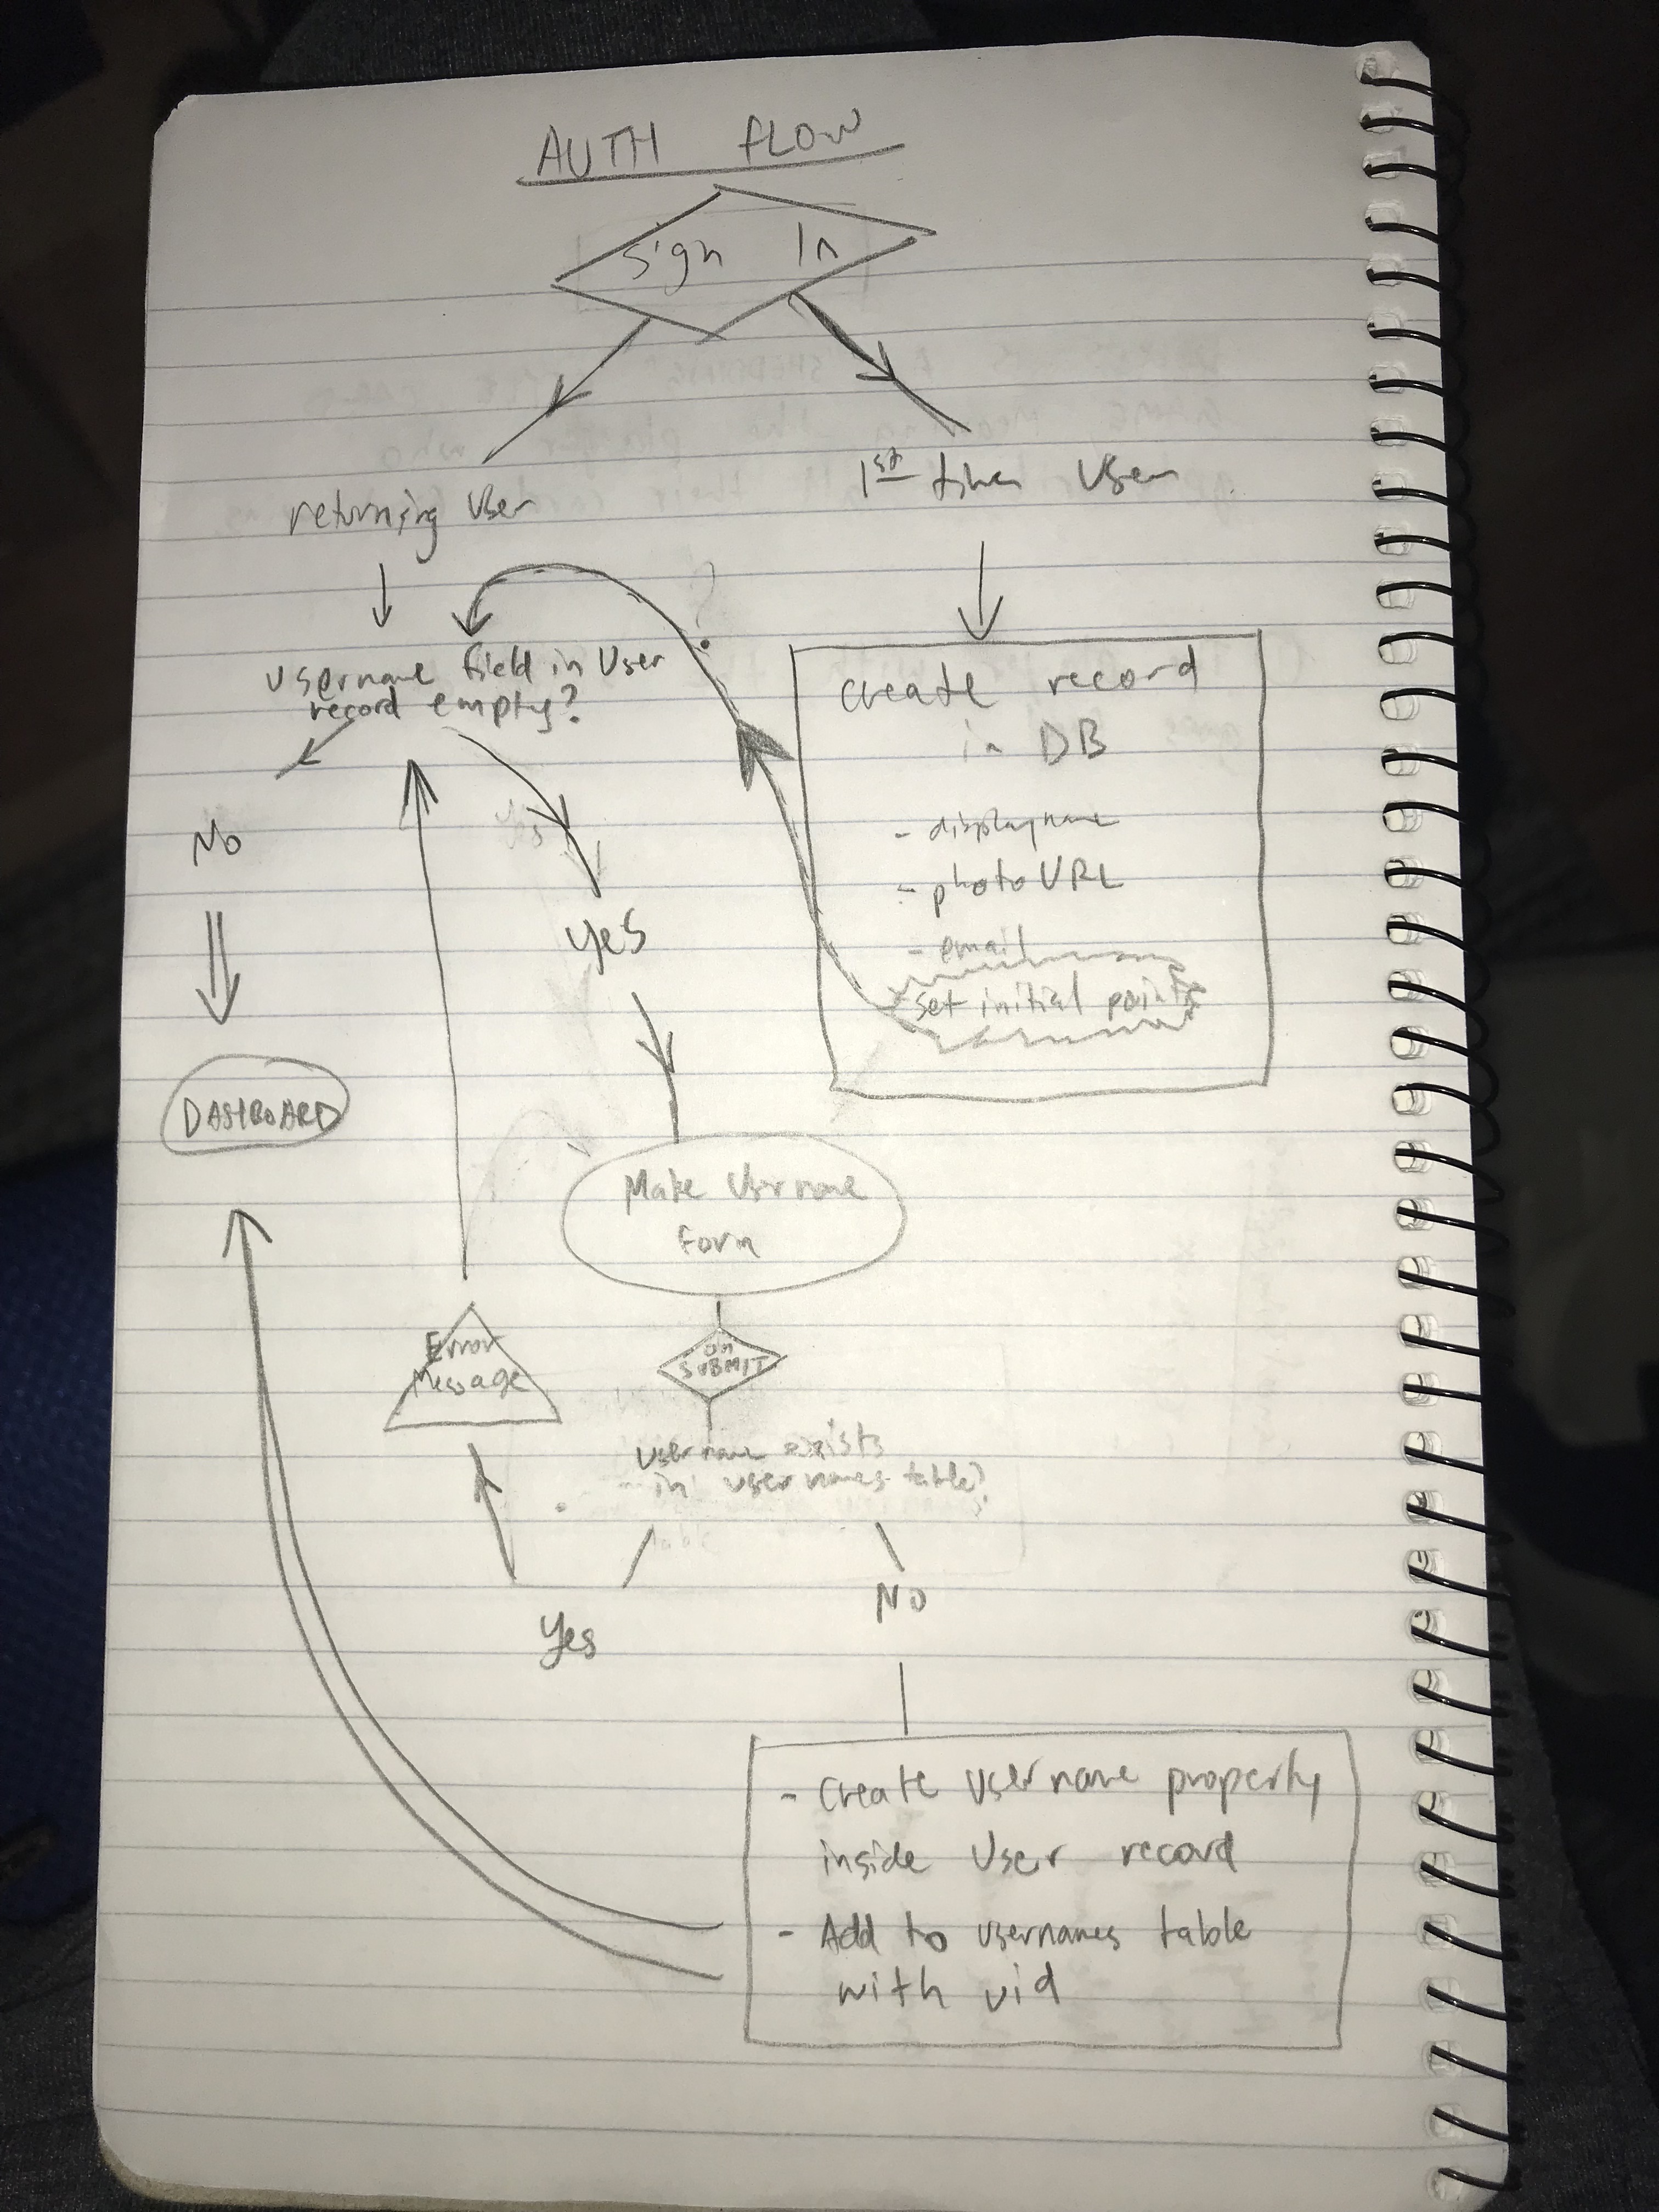 AUTH FLOW
Sign In
returning User
1st time User
username field in User
record empty?
create record
in DB
- displayname
- photoURL
- email
- set initial points
No
Yes
DASHBOARD
Make Username
Form
Error
Message
on
SUBMIT
username exists
in usernames table?
Yes
No
- Create Username property
inside User record
- Add to usernames table
with uid